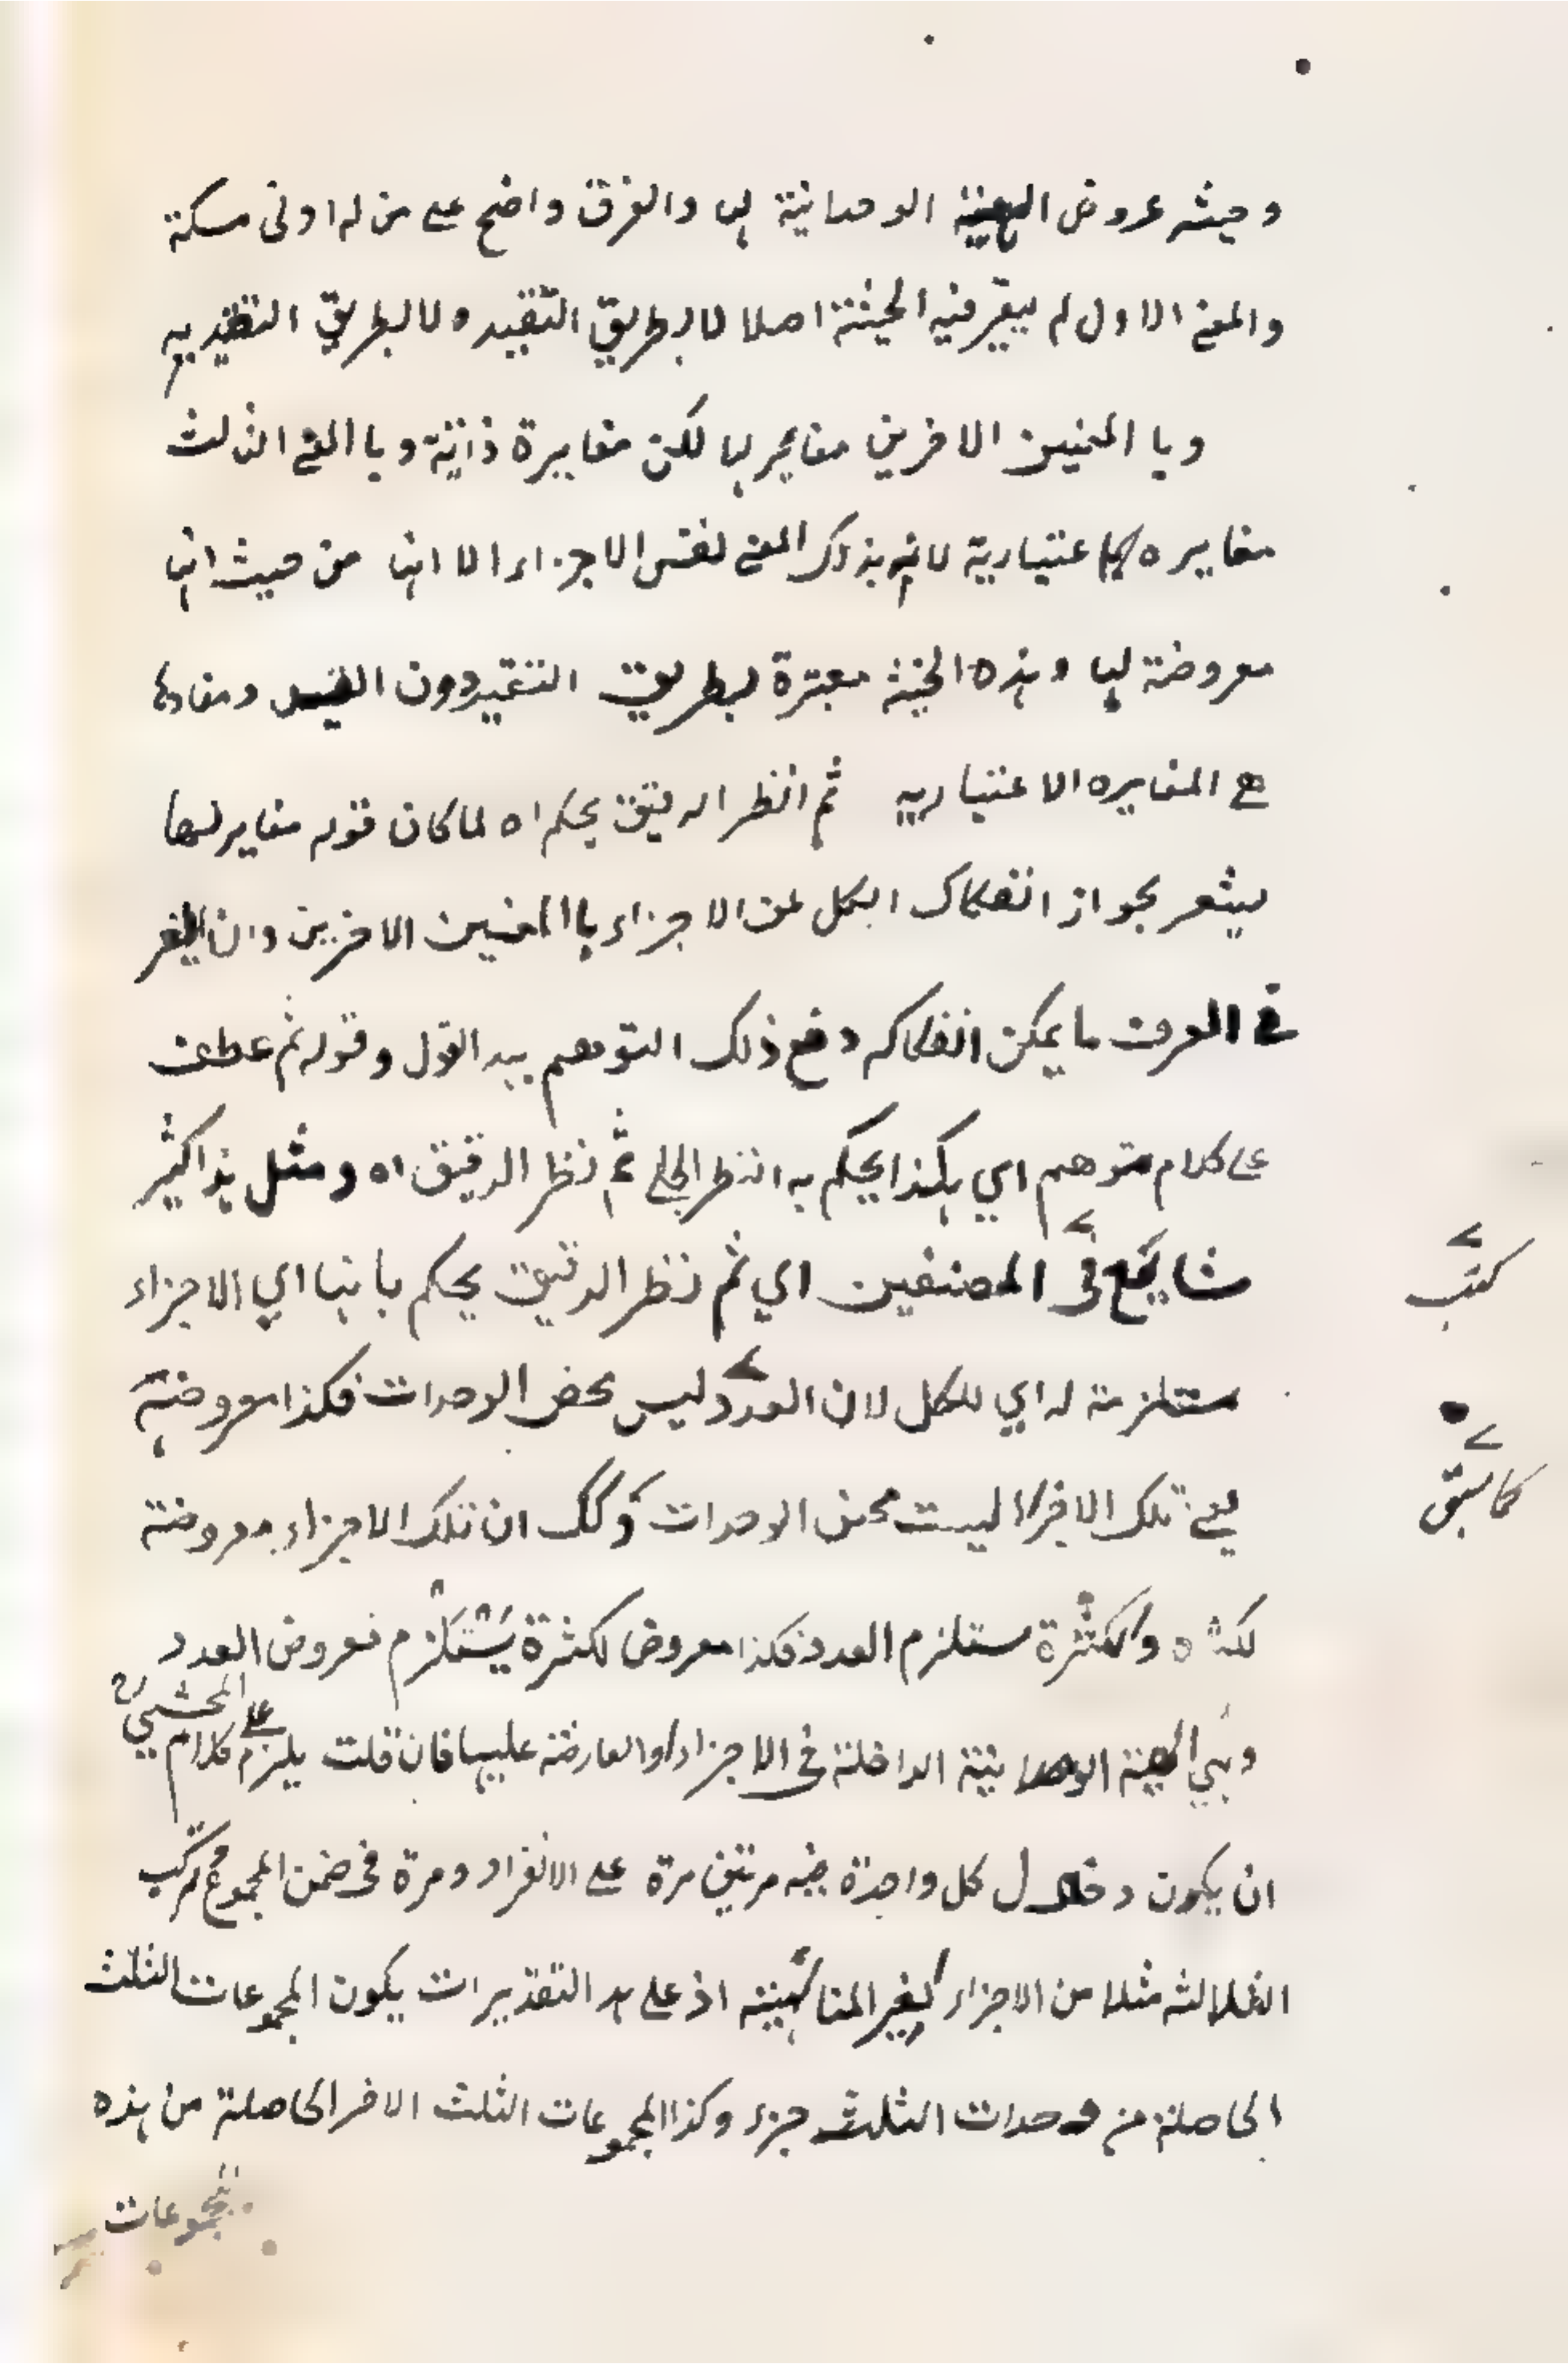 وحيثية عروض الهيئة الوحدانية لها والفرق واضح على من له ادنى مسكة
والمعنى الاول لم يعتبر فيه الحيثية اصلا لا بطريق التقييد ولا بطريق
وبا المعنيين الاخرين مغاير لها لكن مغايرة ذاتية وبا المعنى الثالث
مغايره اعتبارية لانه بذلك المعنى نفس الاجزاء الا انها من حيث انها
معروضة لها وهذه الحيثية معتبرة بطريق التقييد دون
مع المغايره الاعتباريه ثم انظر الدقيق يحكم اه لما كان قوله مغاير لها
يشعر بجواز انفكاك الكل عن الاجزاء با المعنيين الاخرين وان
في العرف ما يمكن انفكاكه دفع ذلك التوهم بهذا القول وقوله ثم عطف
على كلام متوهم اي هكذا يحكم به النظر الجلي ثم نظر الدقيق اه ومثل هذا كثير
شايع في المصنفين اي ثم نظر الدقيق يحكم بانها اي الاجزاء
كتب
مستلزمة له اي للكل لان العدد ليس محض الوحدات فكذا معروضه
كما سبق
يعني تلك الاجزاء ليست محض الوحدات وكذلك ان تلك الاجزاء معروضة
لكثرة والكثرة مستلزم العدد فكذا معروض لكثرة يستلزم فعروض العدد
وهي الهيئة الوحدانية الداخلة في الاجزاء او العارضة عليها فان قلت يلزم على كلام المحشي
ان يكون دخول كل واحدة فيه مرتين مرة على الانفراد ومرة في ضمن المجموع مركب
الثلاثة مثلا من الاجزاء لغير المتناهية اذ على هذا التقديرات يكون المجموعات الثلث
الحاصلة من وحدات الثلث جزء وكذا المجموعات الثلث الاخر الحاصلة من هذه
المجموعات